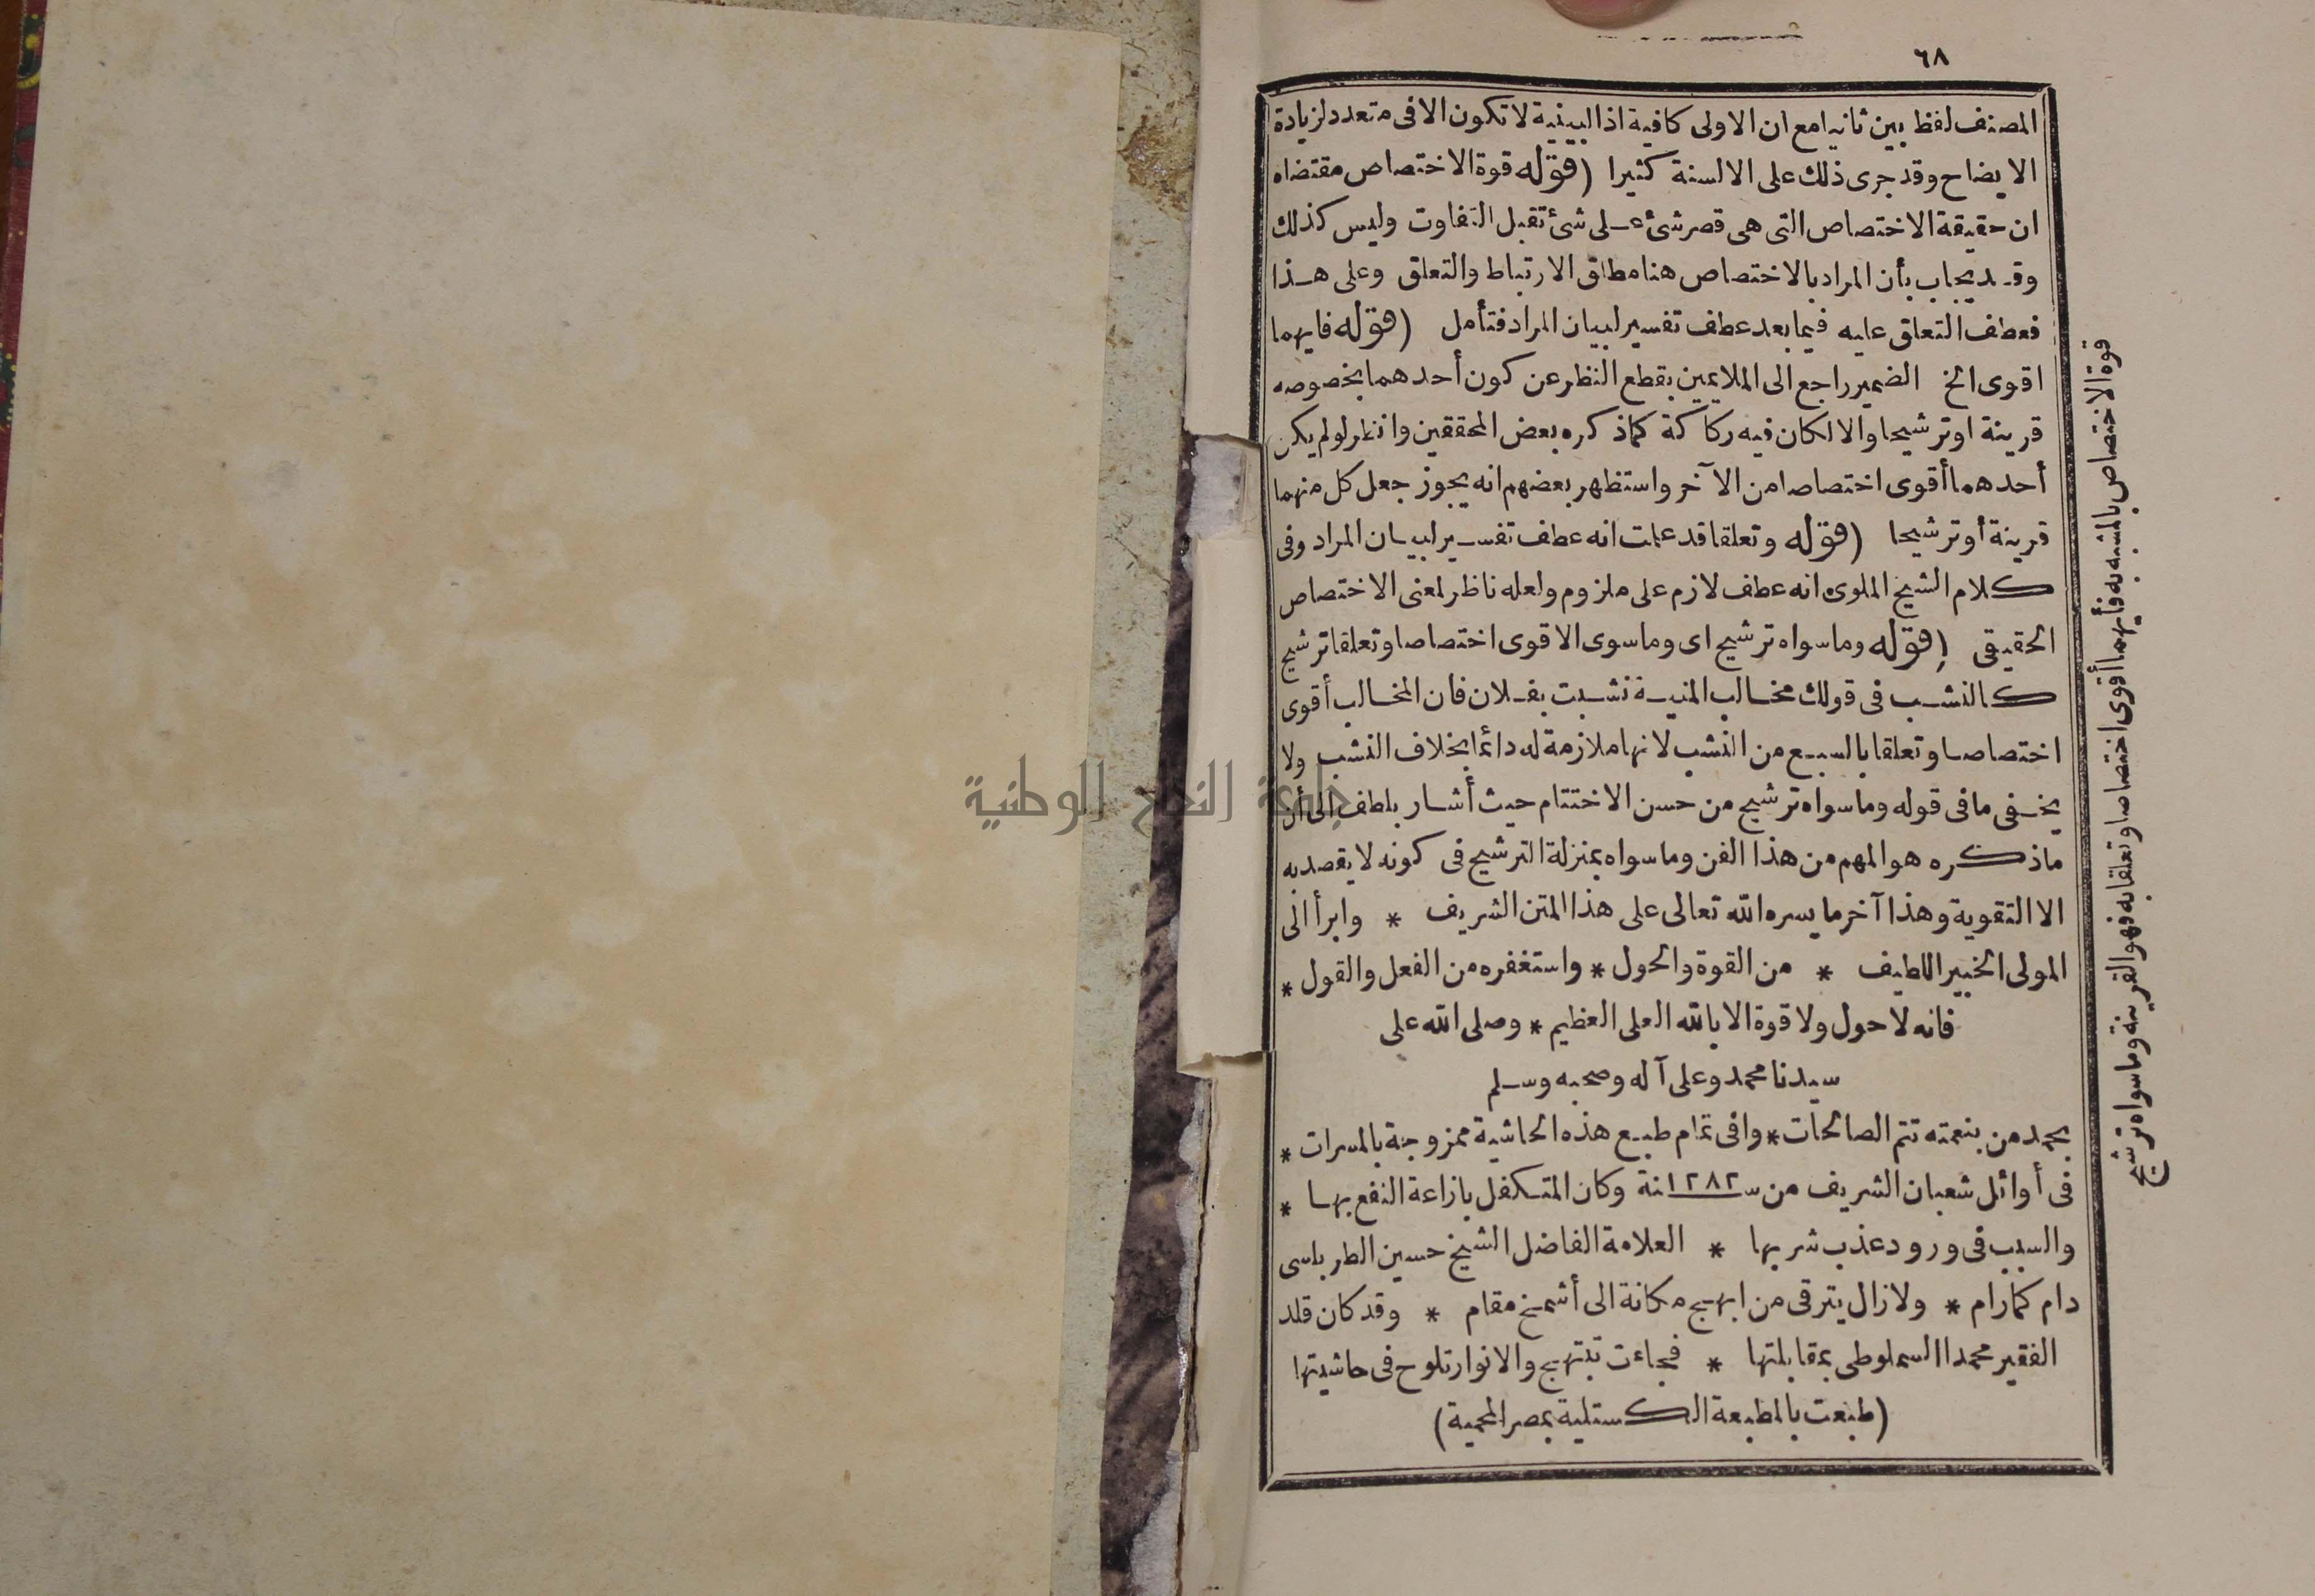 ٦٨
المصنف لفظ بين ثانيا مع ان الاولى كافية اذ البينية لا تكون الا فى متعدد لزيادة
الايضاح وقد جرى ذلك على الالسنة كثيرا (قوله قوة الاختصاص مقتضاه
ان حقيقة الاختصاص التى هى قصر شئ على شئ تقبل التفاوت وليس كذلك
وقد يجاب بأن المراد بالاختصاص هنا مطلق الارتباط والتعلق وعلى هذا
فعطف التعلق عليه فيما بعد عطف تفسير لبيان المراد فتأمل (قوله فايهما
اقوى الخ الضمير راجع الى الملايمين بقطع النظر عن كون أحدهما بخصوصه
قرينة او ترشيحا والا لكان فيه ركاكة كما ذكره بعض المحققين وانظر لو لم يكن
أحدهما أقوى اختصاصا من الآخر واستظهر بعضهم انه يجوز جعل كل منهما
قرينة أو ترشيحا (قوله وتعلقا قد علمت انه عطف تفسير لبيان المراد وفى
كلام الشيخ الملوى انه عطف لازم على ملزوم ولعله ناظر لمعنى الاختصاص
الحقيقى (قوله وما سواه ترشيح اى وما سوى الاقوى اختصاصا وتعلقا ترشيح
كالنشب فى قولك مخالب المنية نشبت بفلان فان المخالب أقوى
اختصاصا وتعلقا بالسبع من النشب لانها ملازمة له دائما بخلاف النشب ولا
يخفى ما فى قوله وما سواه ترشيح من حسن الاختتام حيث أشار بلطف الى أن
ما ذكره هو المهم من هذا الفن وما سواه بمنزلة الترشيح فى كونه لا يقصد به
الا التقوية وهذا آخر ما يسره الله تعالى على هذا المتن الشريف * وابرأ الى
المولى الخبير اللطيف * من القوة والحول * واستغفره من الفعل والقول *
فانه لا حول ولا قوة الا بالله العلى العظيم * وصلى الله على
سيدنا محمد وعلى آله وصحبه وسلم
بحمد من بنعمته تتم الصالحات * وافى تمام طبع هذه الحاشية ممزوجة بالمسرات *
فى أوائل شعبان الشريف من سنة ١٢٨٢ وكان المتكفل بازاعة النفع بها *
والسبب فى ورود عذب شربها * العلامة الفاضل الشيخ حسين الطرباسى
دام كمارام * ولا زال يترقى من ابهج مكانة الى أشمخ مقام * وقد كان قلد
الفقير محمدا السملوطى بمقابلتها * فجاءت تبتهج والانوار تلوح فى حاشيتها
(طبعت بالمطبعة الكستلية بمصر المحمية)
قوة الاختصاص بالمشبه به فأيهما أقوى اختصاصا وتعلقا به فهو القرينة وما سواه ترشيح
جامعة النجاح الوطنية